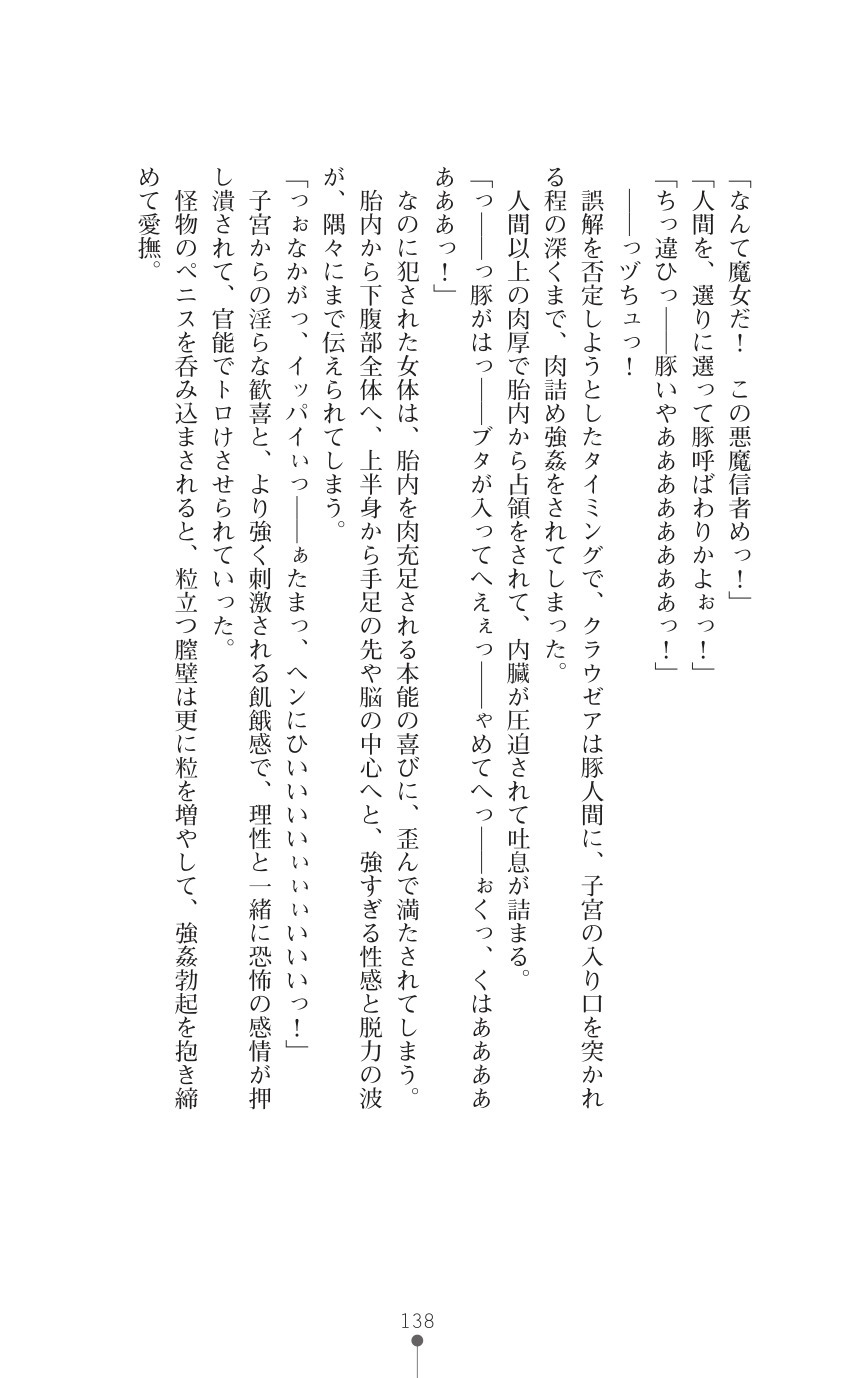 「なんて魔女だ！　この悪魔信者めっ！」
「人間を、選りに選って豚呼ばわりかよぉっ！」
「ちっ違ひっ――豚いやああああああああっ！」
――っヅちュっ！
誤解を否定しようとしたタイミングで、クラウゼアは豚人間に、子宮の入り口を突かれ
る程の深くまで、肉詰め強姦をされてしまった。
人間以上の肉厚で胎内から占領をされて、内臓が圧迫されて吐息が詰まる。
「っ――っ豚がはっ――ブタが入ってへえぇっ――ゃめてへっ――ぉくっ、くはああああ
あああっ！」
なのに犯された女体は、胎内を肉充足される本能の喜びに、歪んで満たされてしまう。
胎内から下腹部全体へ、上半身から手足の先や脳の中心へと、強すぎる性感と脱力の波
が、隅々にまで伝えられてしまう。
「っぉなかがっ、イッパイぃっ――ぁたまっ、ヘンにひいいいいぃぃぃいいいっ！」
子宮からの淫らな歓喜と、より強く刺激される飢餓感で、理性と一緒に恐怖の感情が押
し潰されて、官能でトロけさせられていった。
怪物のペニスを呑み込まされると、粒立つ膣壁は更に粒を増やして、強姦勃起を抱き締
めて愛撫。
138